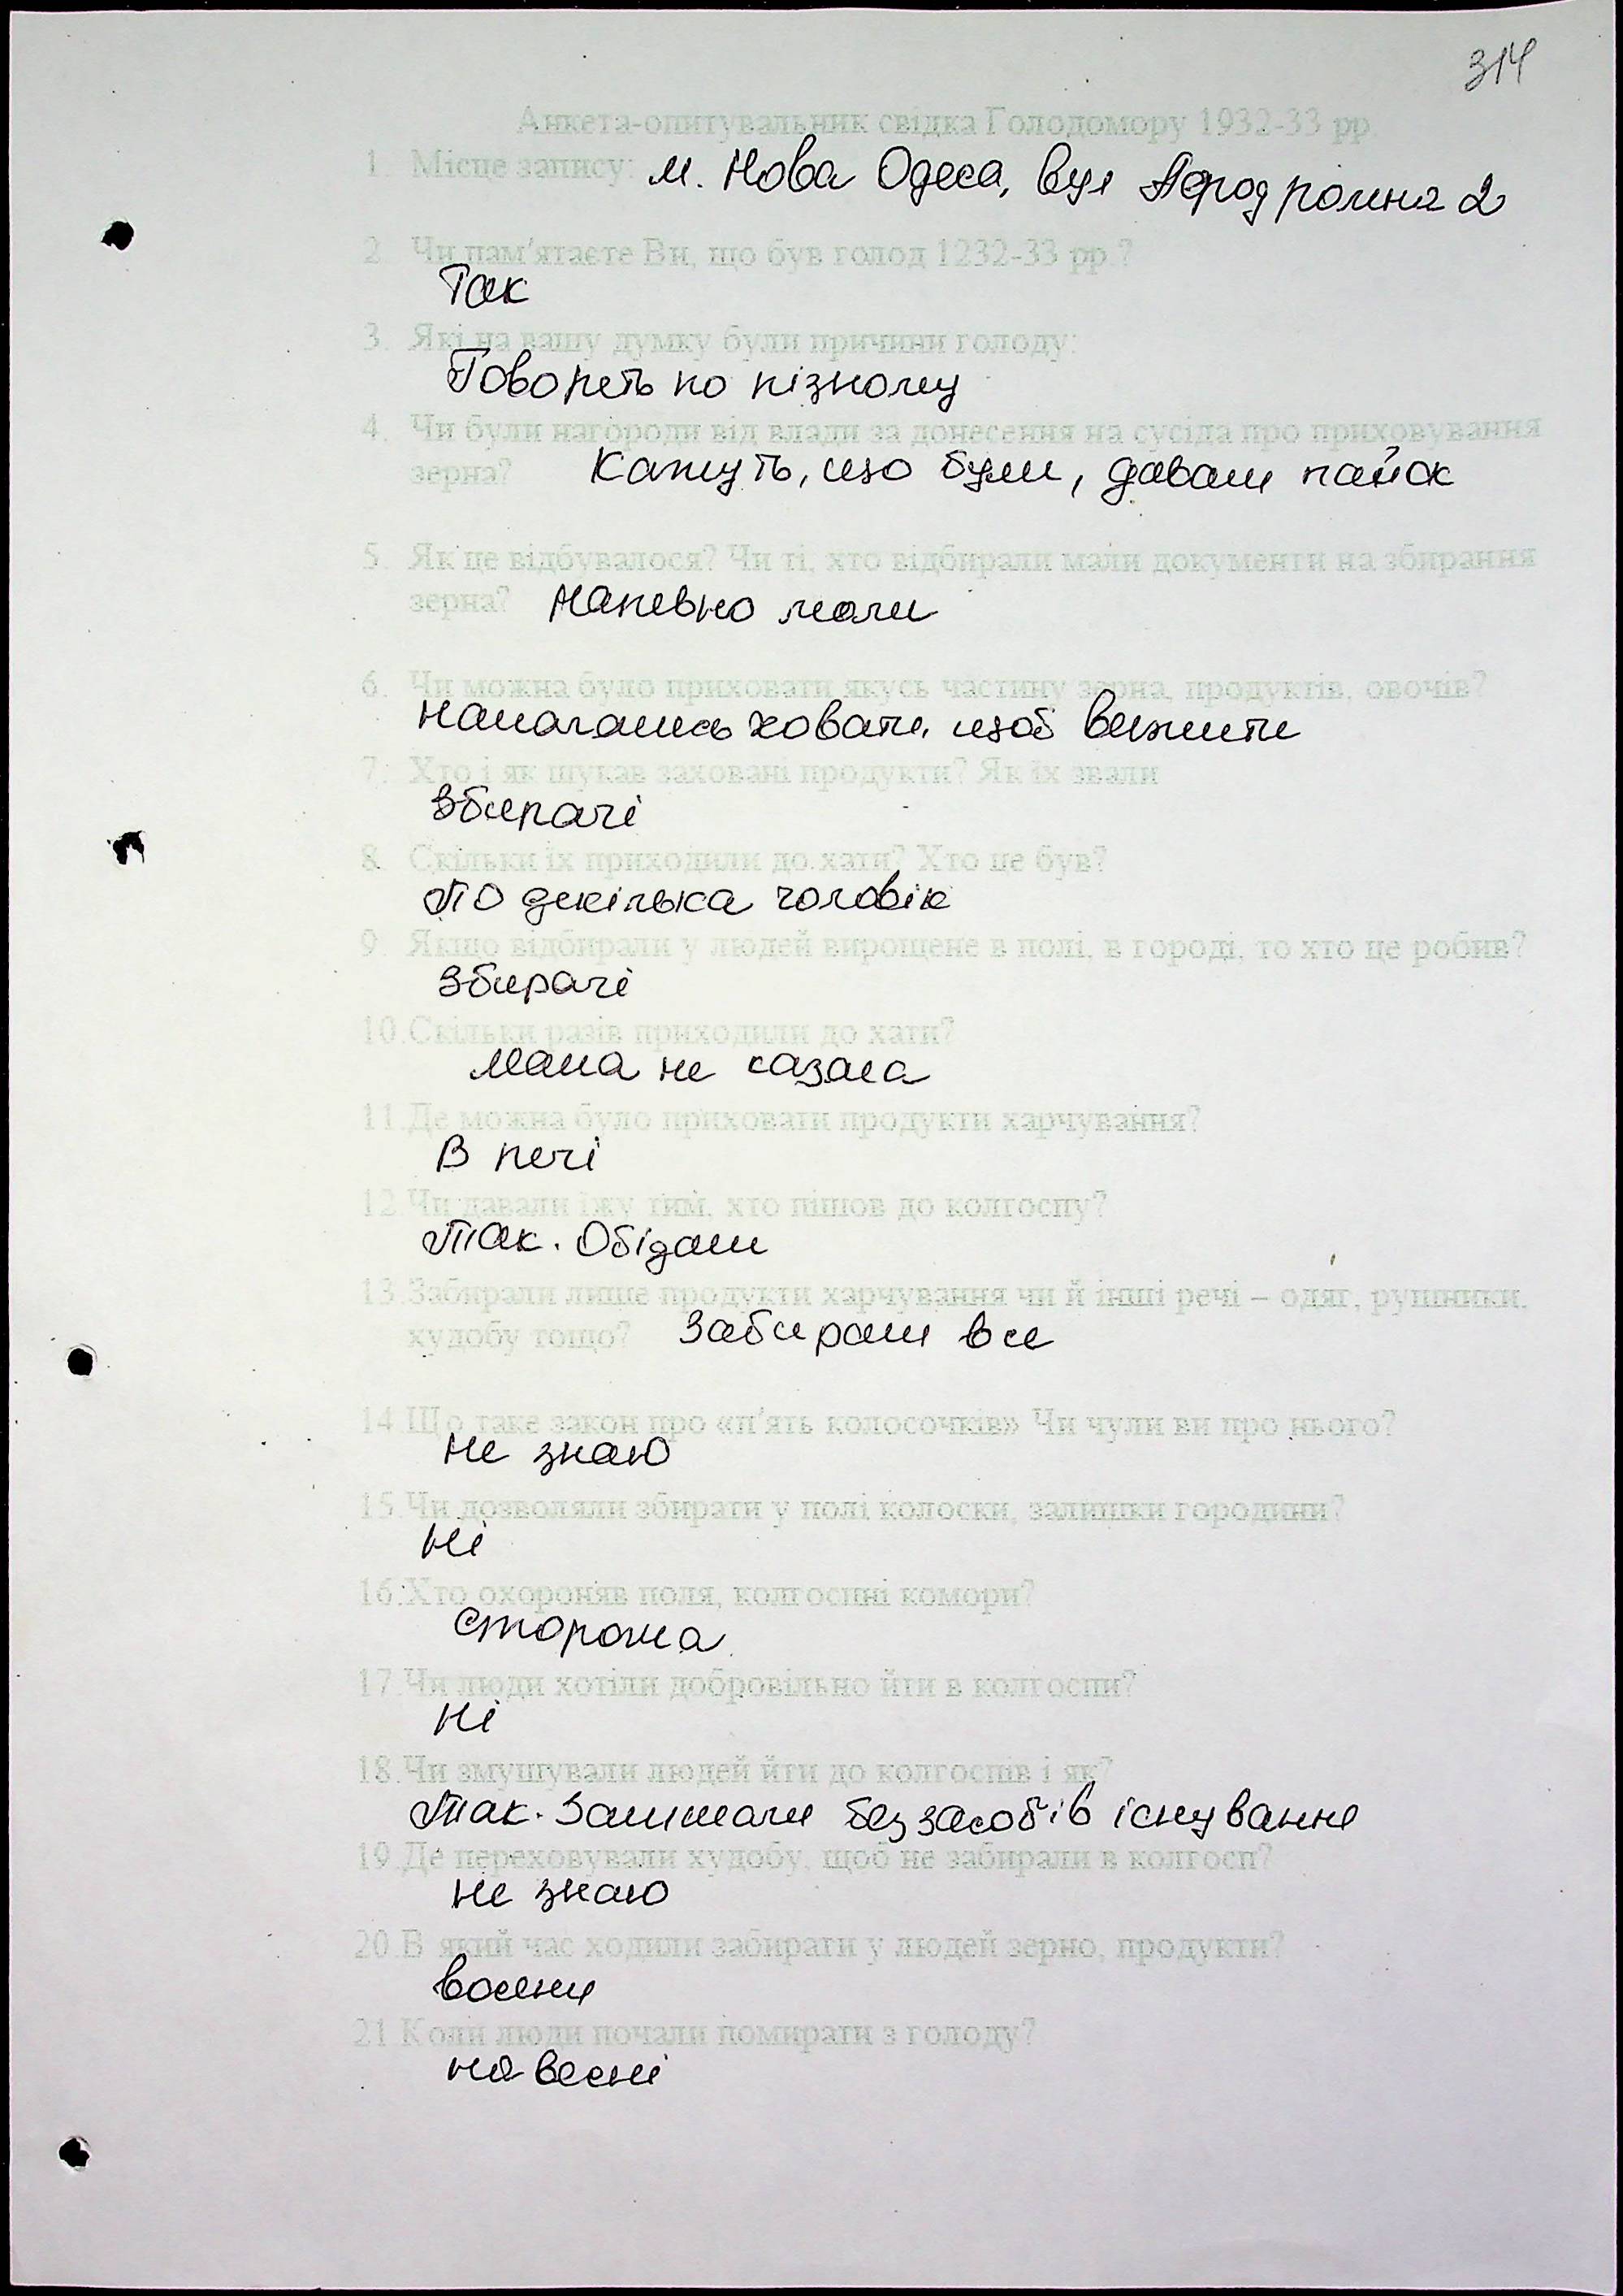 314
Анкета-опитувальник свідка Голодомору 1932-33 рр.
1. Місце запису: м. Нова Одеса, вул Аеродромна 2
2. Чи пам'ятаєте Ви, що був голод 1232-33 рр.?
Так
3. Які на вашу думку були причини голоду:
Говореть по різному
4. Чи були нагороди від влади за донесення на сусіда про приховування
зерна? Кажуть, що були, давали пайок
5. Як це відбувалося? Чи ті, хто відбирали мали документи на збирання
зерна? Напевно мали
6. Чи можна було приховати якусь частину зерна, продуктів, овочів?
Намагались ховати, щоб вижити
7. Хто і як шукав заховані продукти? Як їх звали
Збирачі
8. Скільки їх приходили до хати? Хто це був?
По декілька чоловік
9. Якщо відбирали у людей вирощене в полі, в городі, то хто це робив?
Збирачі
10. Скільки разів приходили до хати?
Мама не казала
11. Де можна було приховати продукти харчування?
В печі
12. Чи давали їжу тим, хто пішов до колгоспу?
Так. Обідали
13. Забирали лише продукти харчування чи й інші речі – одяг, рушники,
худобу тощо? Забирали все
14. Що таке закон про «п'ять колосочків» Чи чули ви про нього?
Не знаю
15. Чи дозволяли збирати у полі колоски, залишки городини?
Ні
16. Хто охороняв поля, колгоспні комори?
Сторожа
17. Чи люди хотіли добровільно йти в колгоспи?
Ні
18. Чи змушували людей йти до колгоспів і як?
Так. Залишали без засобів існування
19. Де переховували худобу, щоб не забирали в колгосп?
Не знаю
20. В який час ходили забирати у людей зерно, продукти?
восени
21 Коли люди почали помирати з голоду?
на весні